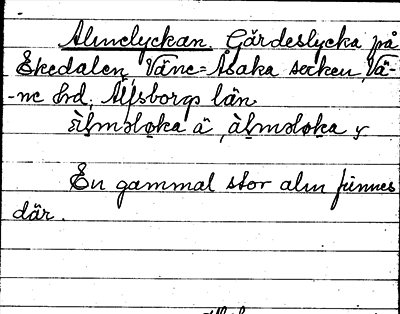 Almelyckan Gärdeslycka på
Ekedalen, Väne=Åsaka socken, Vä-
-ne hd, Älfsborgs län.
En gammal stor alm finnes
där.